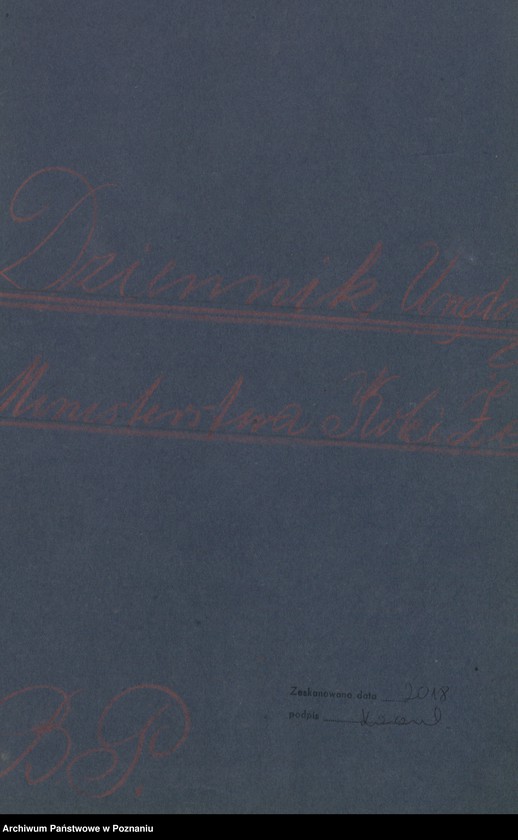 Dziennik Urzęd
Ministerstwa Kolei Że
B. P.
Zeskanowano data 2018
podpis
Archiwum Państwowe w Poznaniu